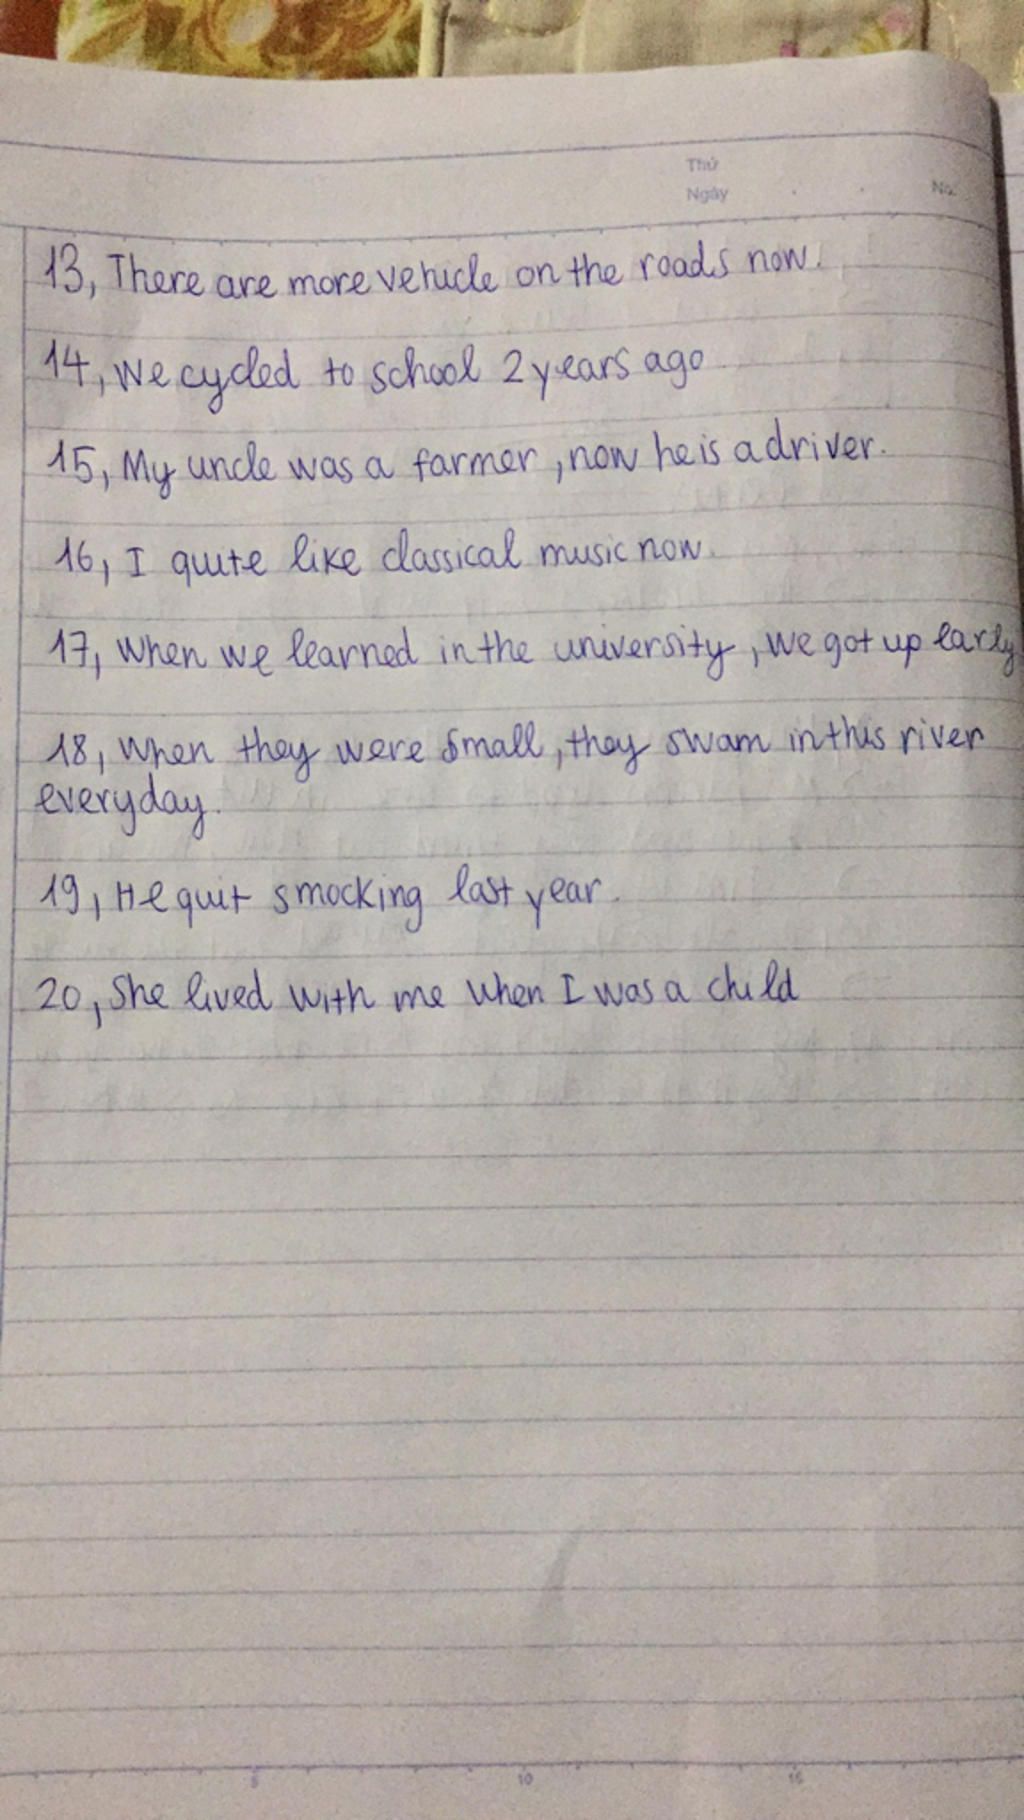 Thứ
Ngày
No.
13, There are more vehicle on the roads now.
14, We cycled to school 2 years ago
15, My uncle was a farmer, now he is a driver.
16, I quite like classical music now.
17, When we learned in the university, we got up early
18, When they were small, they swam in this river
everyday.
19, He quit smocking last year.
20, She lived with me when I was a child
5 10 15